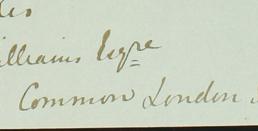 illiams Esqre
Common London